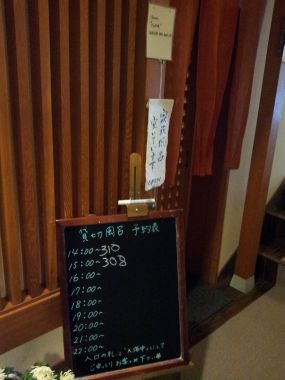 貸切風呂
空いています
OPEN
貸切風呂 予約表
14:00~310
15:00~308
16:00~
17:00~
18:00~
19:00~
20:00~
21:00~
22:00~
入口の札を"入浴中"にして
ごゆっくりお寛ぎ下さい